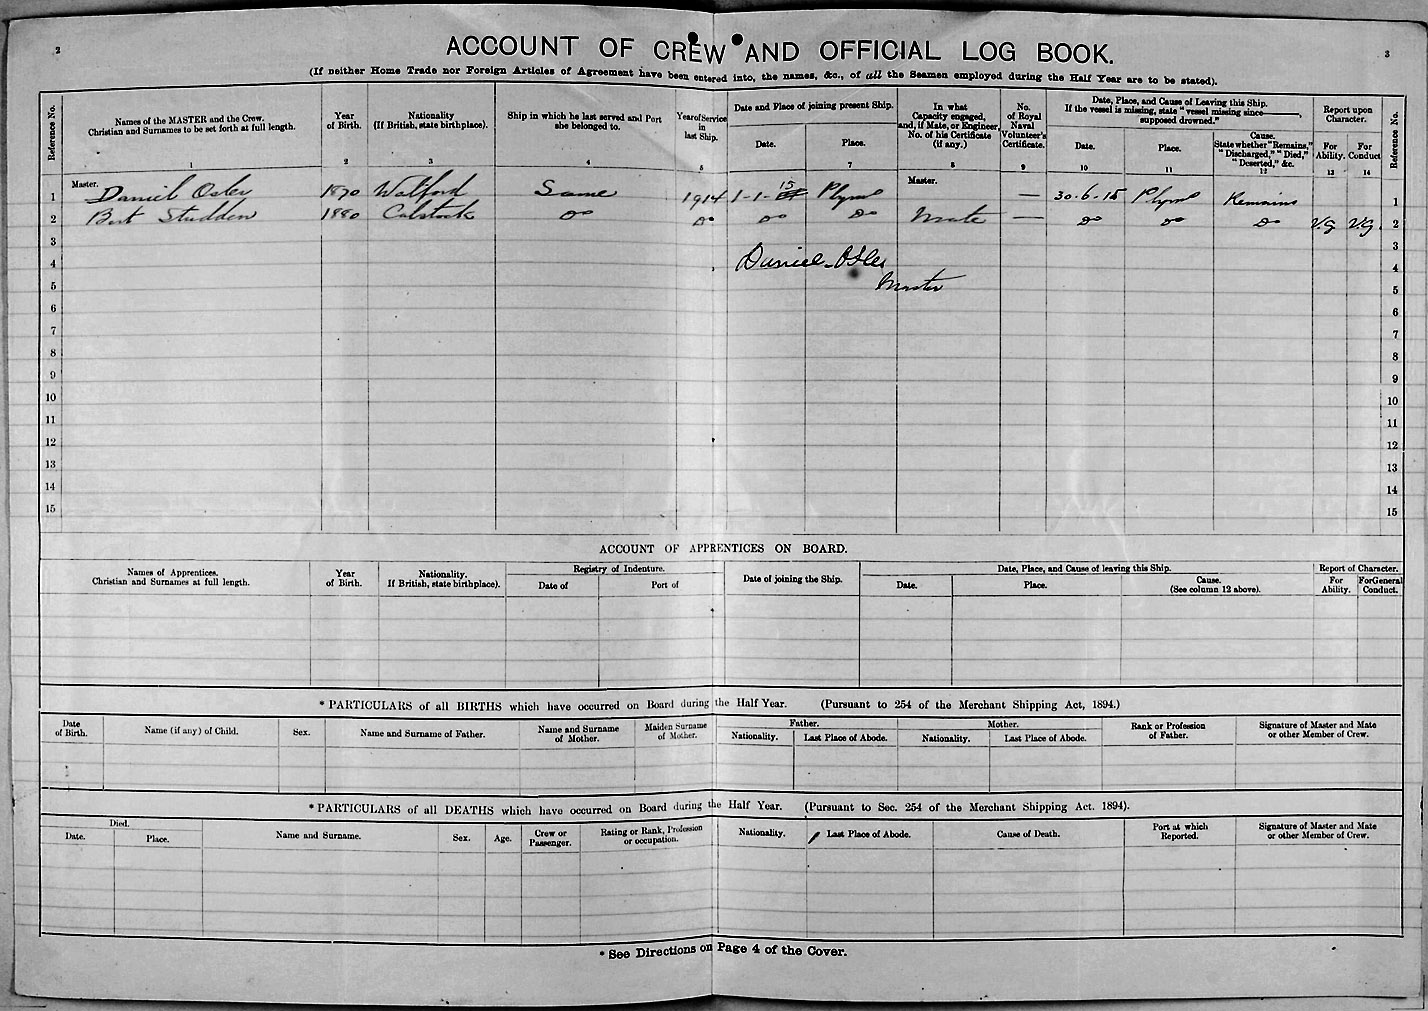 2
3
ACCOUNT OF CREW AND OFFICIAL LOG BOOK.
(If neither Home Trade nor Foreign Articles of Agreement have been entered into, the names, &c., of all the Seamen employed during the Half Year are to be stated).
Reference No.
Names of the MASTER and the Crew.
Christian and Surnames to be set forth at full length.
Year of Birth.
Nationality
(If British, state birthplace).
Ship in which he last served and Port she belonged to.
Year of Service in last Ship.
Date and Place of joining present Ship.
Date.
Place.
In what Capacity engaged, and, if Mate, or Engineer, No. of his Certificate (if any.)
No. of Royal Naval Volunteer's Certificate.
Date, Place, and Cause of Leaving this Ship.
If the vessel is missing, state "vessel missing since———, supposed drowned."
Date.
Place.
Cause.
State whether "Remains," "Discharged," "Died," "Deserted," &c.
Report upon Character.
For Ability.
For Conduct
Reference No.
1 2 3 4 5 7 8 9 10 11 12 13 14
Master.
Master.
1 Daniel Osler 1870 Watford Same 1914 1-1-15 Plym — 30-6-15 Plym Remains 1
2 Bert Studden 1880 Calstock Do Do Do Do Mate — Do Do Do V.G V.G. 2
3 3
4 Daniel Osler 4
5 Master 5
6 6
7 7
8 8
9 9
10 10
11 11
12 12
13 13
14 14
15 15
ACCOUNT OF APPRENTICES ON BOARD.
Names of Apprentices.
Christian and Surnames at full length.
Year of Birth.
Nationality.
If British, state birthplace).
Registry of Indenture.
Date of
Port of
Date of joining the Ship.
Date, Place, and Cause of leaving this Ship.
Date.
Place.
Cause.
(See column 12 above).
Report of Character.
For Ability.
For General Conduct.
* PARTICULARS of all BIRTHS which have occurred on Board during the Half Year. (Pursuant to 254 of the Merchant Shipping Act, 1894.)
Date of Birth.
Name (if any) of Child.
Sex.
Name and Surname of Father.
Name and Surname of Mother.
Maiden Surname of Mother.
Father.
Nationality.
Last Place of Abode.
Mother.
Nationality.
Last Place of Abode.
Rank or Profession of Father.
Signature of Master and Mate or other Member of Crew.
* PARTICULARS of all DEATHS which have occurred on Board during the Half Year. (Pursuant to Sec. 254 of the Merchant Shipping Act. 1894).
Died.
Date.
Place.
Name and Surname.
Sex.
Age.
Crew or Passenger.
Rating or Rank, Profession or occupation.
Nationality.
Last Place of Abode.
Cause of Death.
Port at which Reported.
Signature of Master and Mate or other Member of Crew.
* See Directions on Page 4 of the Cover.